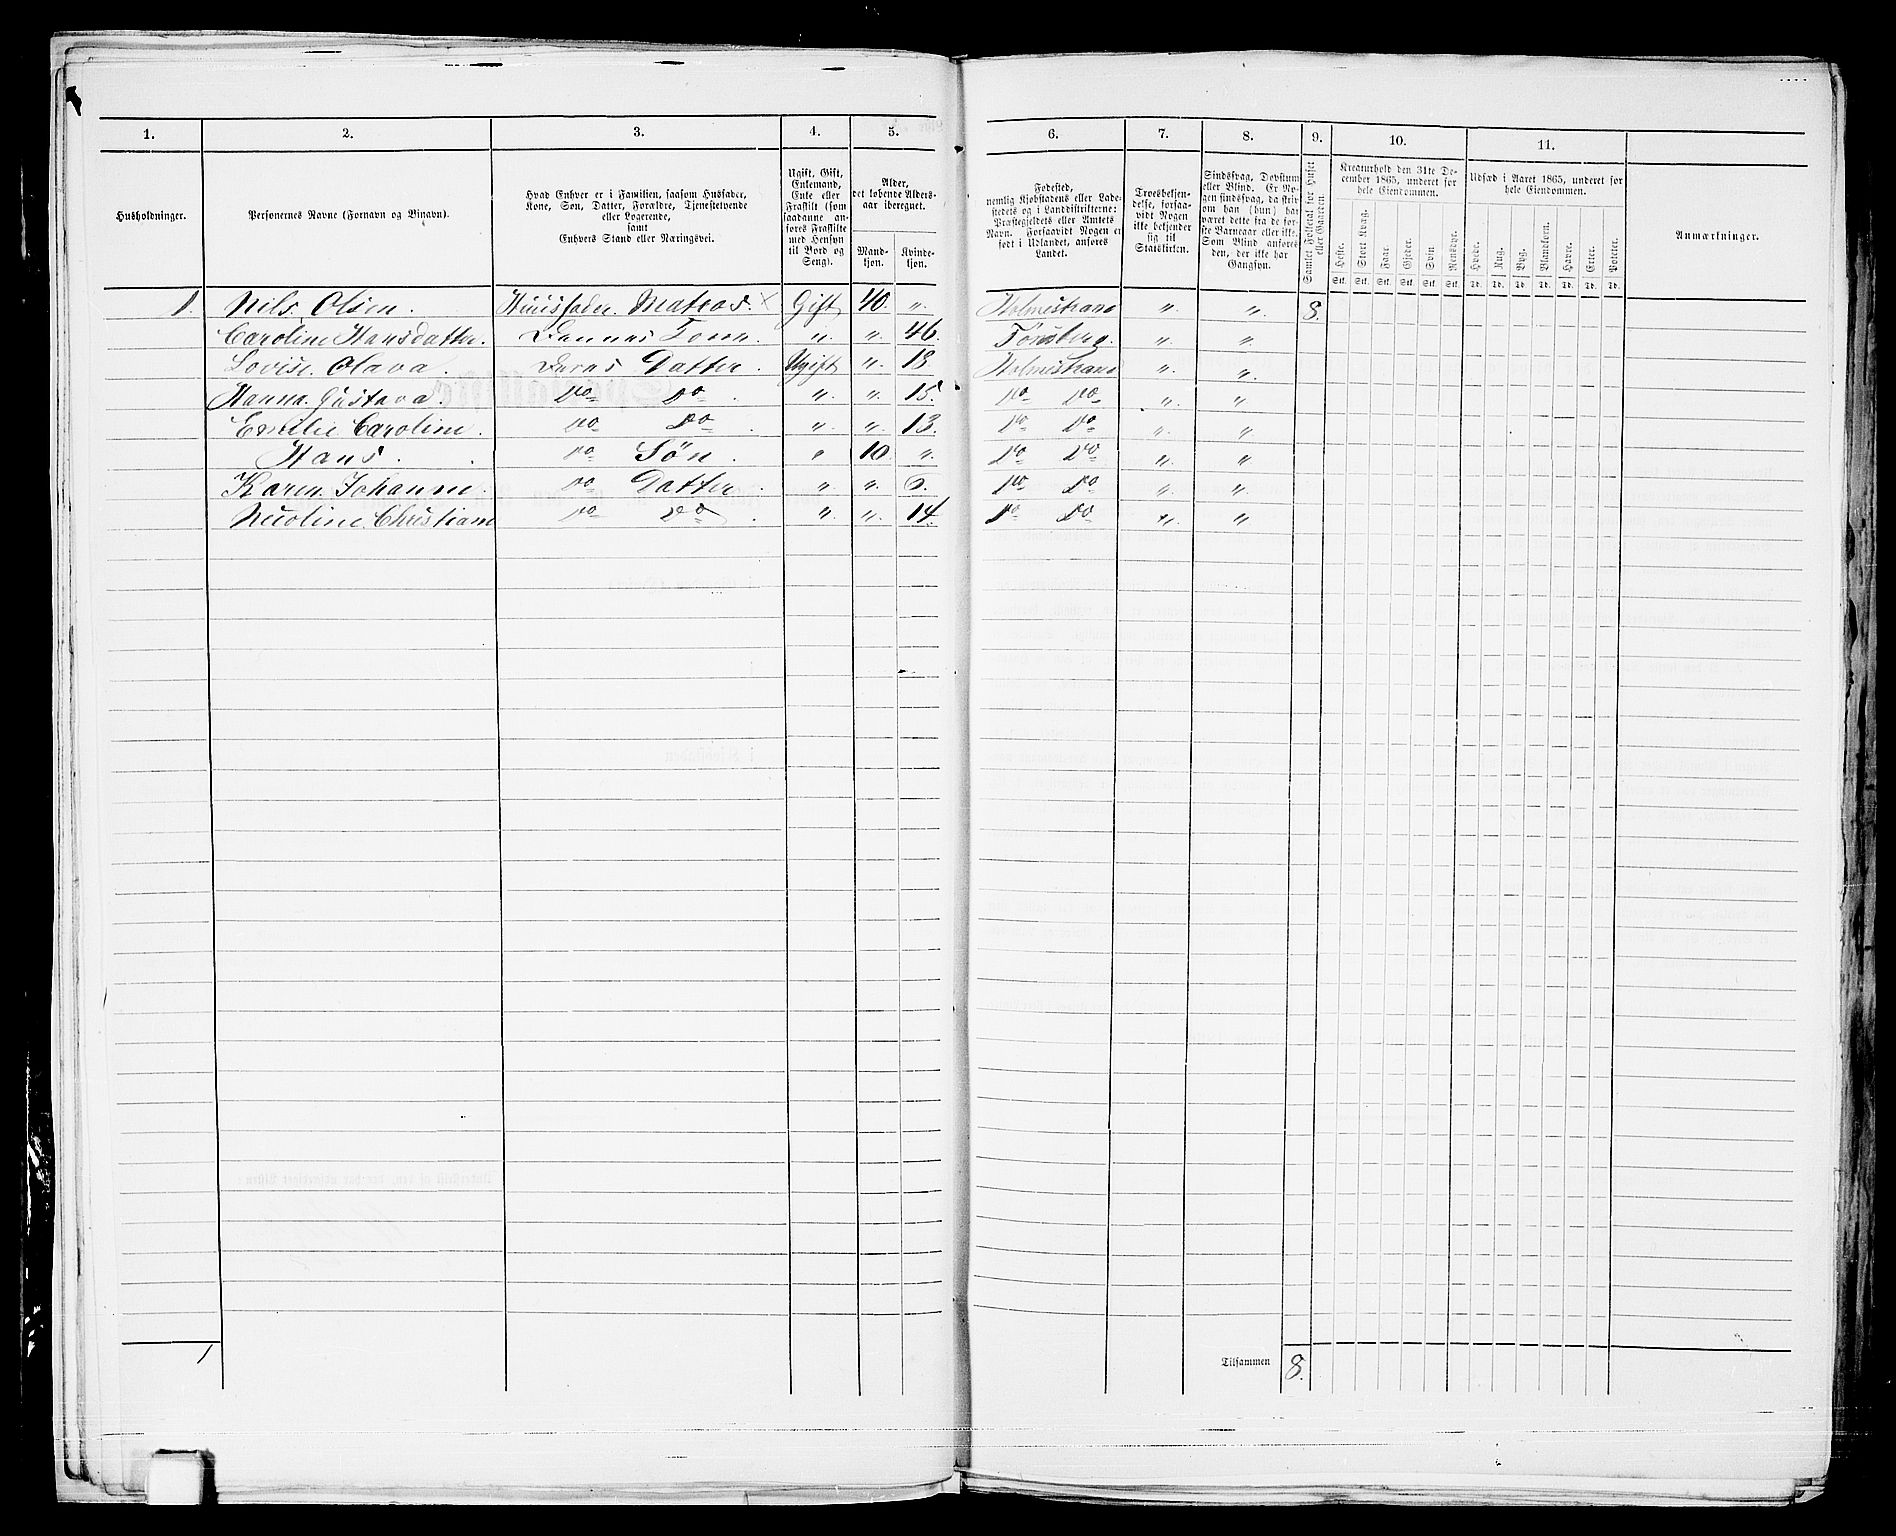 1. 2. 3. 4. 5. 6. 7. 8. 9. 10. 11.
Husholdninger.
Personernes Navne (Fornavn og Binavn).
Hvad Enhver er i Familien, saasom Husfader,
Kone, Søn, Datter, Forældre, Tjenestetyende
eller Logerende,
samt
Enhvers Stand eller Næringsvei.
Ugift, Gift,
Enkemand,
Enke eller
Fraskilt (som
saadanne an-
føres Fraskilte
med Hensyn
til Bord og
Seng).
Alder,
det løbende Alders-
aar iberegnet.
Mand-
kjøn.
Kvinde-
kjøn.
Fødested,
nemlig Kjøbstadens eller Lade-
stedets og i Landdistrikterne:
Præstegjeldets eller Amtets
Navn. Forsaavidt Nogen er
født i Udlandet, anføres
Landet.
Troesbekjen-
delse, forsaa-
vidt Nogen
ikke bekjender
sig til
Statskirken.
Sindssvag, Døvstum
eller Blind. Er No-
gen sindssvag, da skriv
om han (hun) har
været dette fra de før-
ste Barneaar eller ikke.
Som Blind anføres
den, der ikke har
Gangsyn.
Samlet Folketal for Huset
eller Gaarden.
Kreaturhold den 31te De-
cember 1865, underet for
hele Eiendommen.
Heste. Stort Kvæg. Faar. Gjeder. Svin Rensdyr.
Stk. Stk. Stk. Stk. Stk. Stk.
Udsæd i Aaret 1865, underet for
hele Eiendommen.
Hvede. Rug. Byg. Blandkorn. Havre. Erter. Poteter.
Td. Td. Td. Td. Td. Td. Td.
Anmærkninger.
1. Nils Olsen. Huusfader Matros. × Gift 40. „ Holmestrand „ „ 8.
Caroline Hansdatter. Dennes Kone „ „ 46. Tønsberg. „ „
Lovise Olava. Deres Datter. Ugift „ 18 Holmestrand „ „
Hanna Gustava. Do Do. „ „ 15. Do Do „ „
Emilie Caroline. Do Do. „ „ 13. Do Do „ „
Hans. Do Søn. „ 10. „ Do Do „ „
Karen Johanne. Do Datter. „ „ 6. Do Do „ „
Nicoline Christiane Do Do. „ „ 14. Do Do „ „
1
Tilsammen 8.